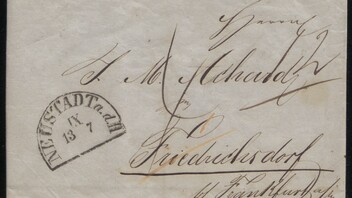 Herrn
J. M. Achard
NEUSTADT a.d.H
IX
13 7
Friedrichsdorf
bf Frankfurt a/m